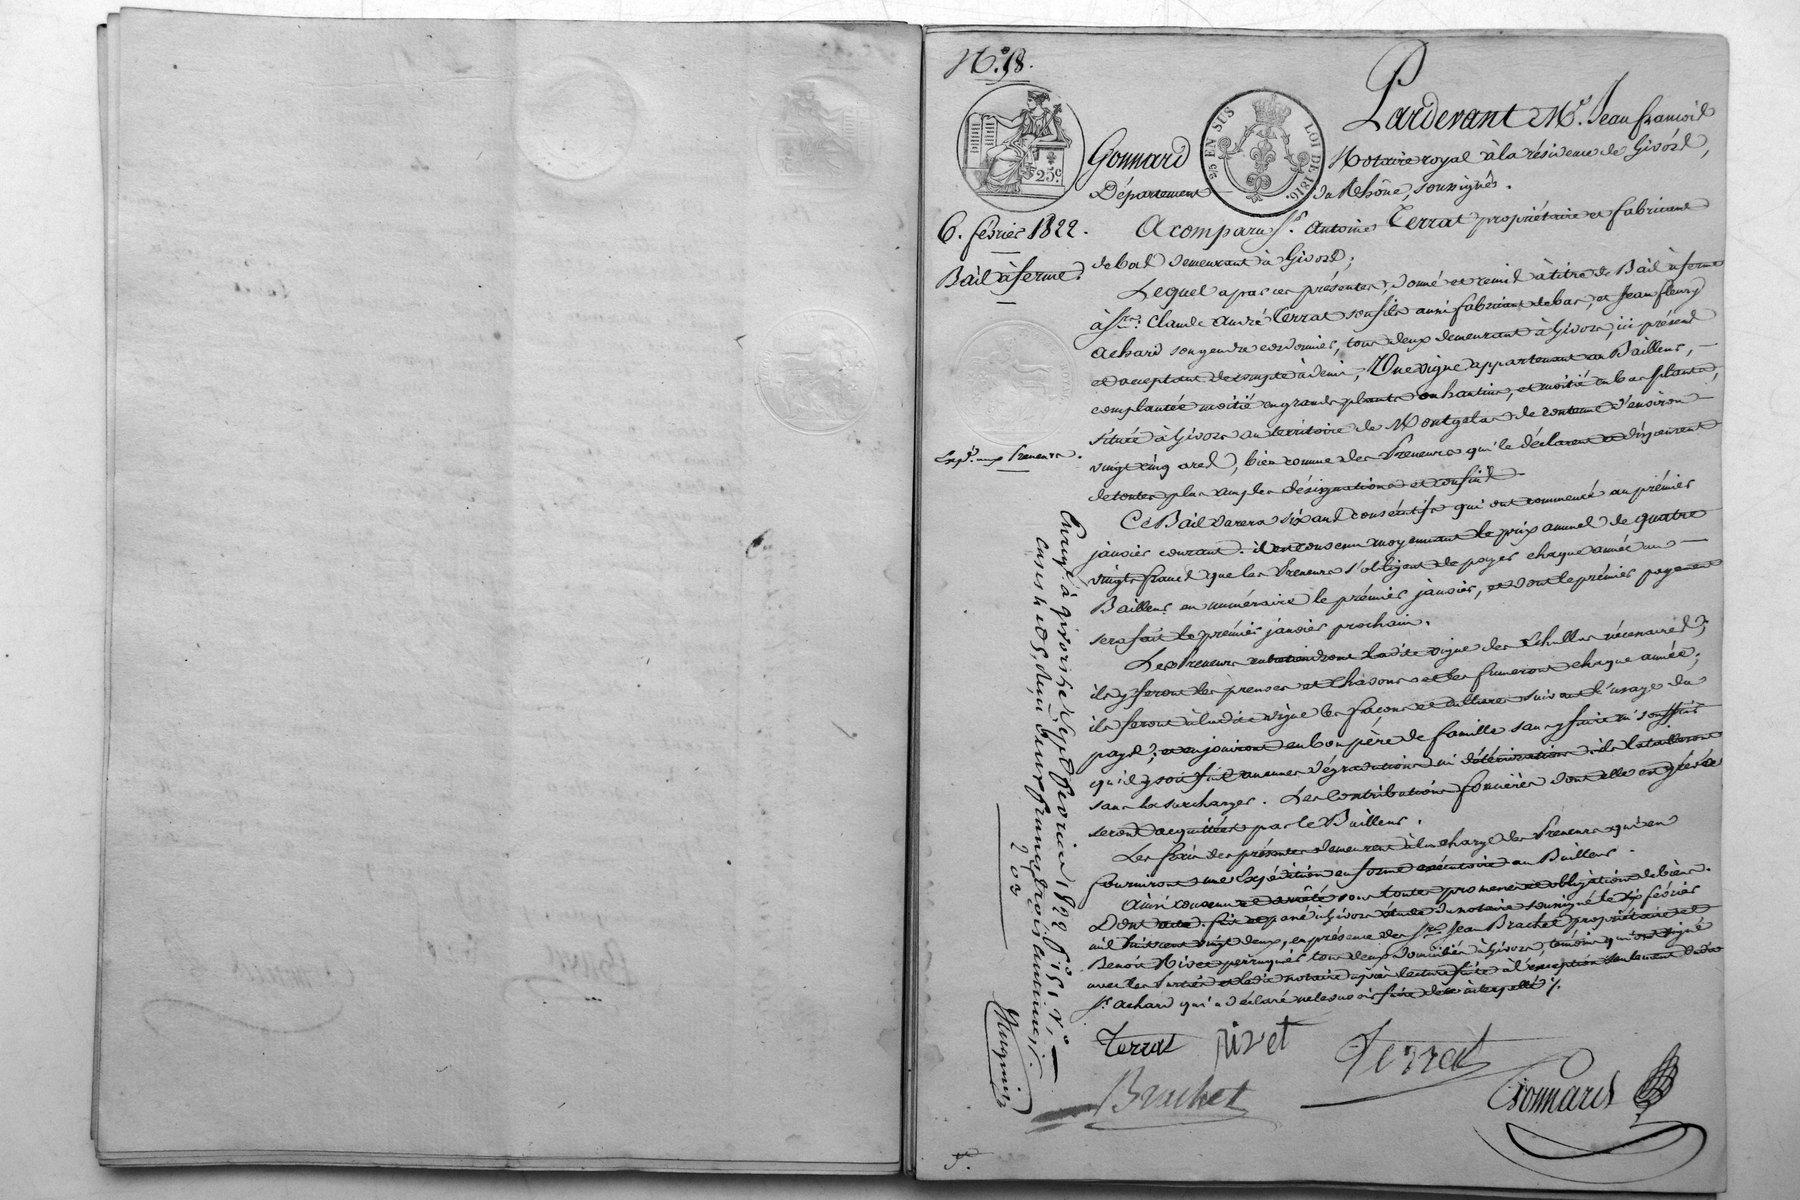 N.° 98.
25 EN SUS
LOI DE 1816.
25c
Pardevant Me. Jean françois
Gonnard Notaire royal à la résidence de Givors,
Département du Rhône, soussignés.
6. février 1822.
Bail à ferme.
Exp.on aux Preneurs.
A comparu Sr. Antoine Terrat propriétaire et fabricant
de bas demeurant à Givors;
Lequel a par ces présentes, donné et remis à titre de Bail à ferme
à Srs. Claude André Terrat son fils aussi fabricant de bas, et Jean fleury
Achard son gendre cordonnier, tous deux demeurant à Givors, ici présens
et acceptant de compte à demi, Une vigne appartenant au Bailleur,
complantée moitié en grands plants ou hautins, et moitié en bas plants,
située à Givors au territoire de Montgelas de contenue d'environ
vingt cinq ares, bien connue des Preneurs qui le déclarent et dispensent
de toutes plus amples désignations et confins.
Ce Bail durera six ans consécutifs qui ont commencé au premier
janvier courant. il est consenu moyennant le prix annuel de quatre
vingts francs que les Preneurs s'obligent de payer chaque année au
Bailleur en numéraire le premier janvier, et dont le premier payement
sera fait le premier janvier prochain.
Les Preneurs entretiendront ladite vigne des échallas nécessaires;
ils y feront les preuses et chasons et les fumeront chaque année;
ils feront à ladite vigne les façons et cultures suivant l'usage du
pays, et en jouiront en bon père de famille sans y faire ni souffrir
qu'il y soit fait aucunes dégradations ni détériorations. ils la tailleront
sans la surcharger. Les Contributions foncières dont elle est grevée
seront acquittées par le Bailleur.
Les frais des présentes demeurent à la charge des Preneurs qui en
fourniront une Expédition en forme exécutoire au Bailleur.
Ainsi convenu et arrêté sous toutes promesses et obligations de biens.
Dont acte. fait et passé à Givors étude du notaire soussigné le six février
mil huit cent vingt deux, en présence des Srs. Jean Brachet propriétaire et
Benoit Rivet perruquier tous deux domiciliés à Givors, témoins qui ont signé
avec les parties et ledit notaire après lecture faite à l'exception seulement dudit
Sr. Achard qui a déclaré ne le savoir faire de ce interpellé /.
Terrat rivet Terrat
Brachet Gonnard
Enreg.é à givors le sept février 1822 f.o 151 v.o
cases 4 et 5, reçu deux francs trois centimes.
2 03